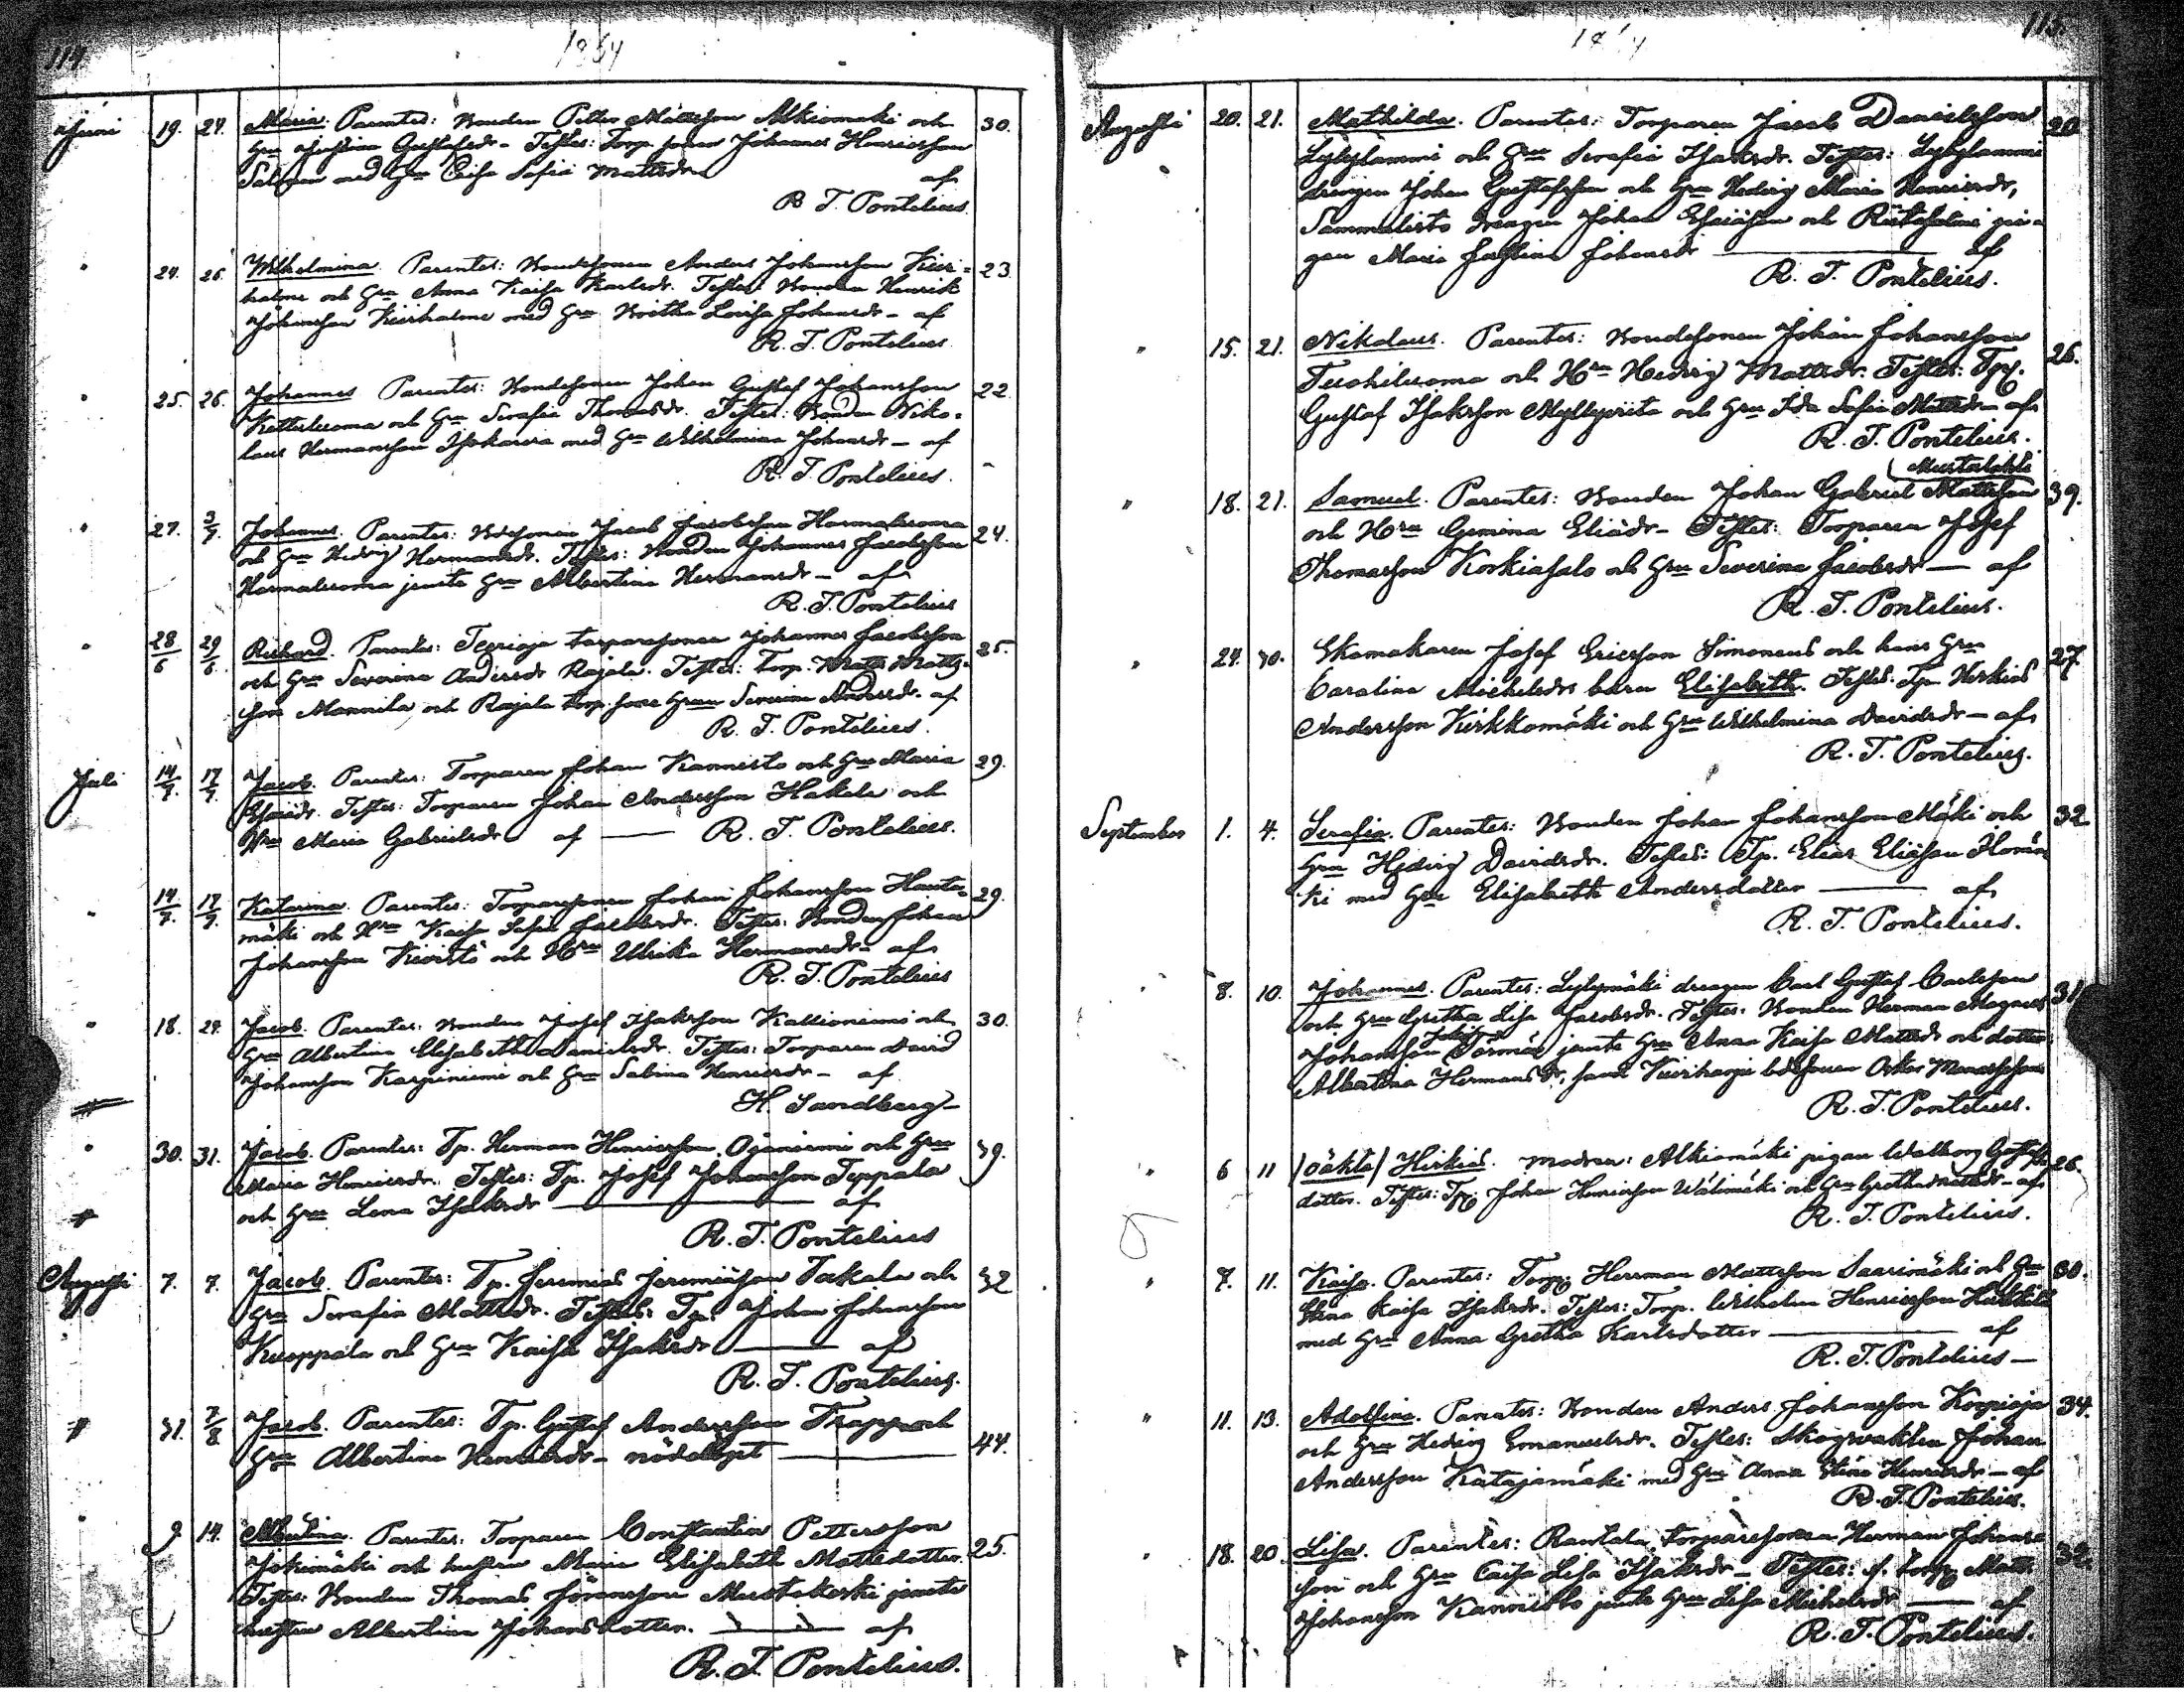 114.
1864
Juni 19. 24. Maria. Parentes: Bonden Petter Mattsson Alkiomäki och 30.
hru Justina Gustafsdr. Testes: Torp. sonen Johannes Henricsson
med hru Caisa Sofia Mattsdr af
R. T. Pontelius.
" 24. 26. Wilhelmina. Parentes: Bondesonen Anders Johansson Kivi= 23.
halme och hru Anna Kaisa Karlsdr. Testes: Bonden Henrik
Johansson Kivihalme med hru Britha Lovisa Johansdr - af
R. T. Pontelius.
" 25. 26. Johannes Parentes: Bondesonen Johan Gustaf Johansson 22.
Kettuluoma och hru Serafia Thomasdr. Testes: Bonden Niko=
laus Hermansson Isokaivia med hru Wilhelmina Johansdr - af
R. T. Pontelius.
" 27. 3/7. Johannes. Parentes: Bdesonen Jacob Jacobsson Harmaluoma 24.
och hru Hedvig Hermansdr. Testes: Bonden Johannes Jacobsson
Harmaluoma jemte hru Albertina Hermansdr - af
R. T. Pontelius
" 28/6 29/6. Richard. Parentes: torparesonen Johannes Jacobsson 25.
och hru Severina Andersdr Rajala. Testes: Torp. Matts Matts=
son Mannila och Rajala torp. sons hrun Severina Andersdr. af
R. T. Pontelius.
Juli 14/7. 17/7. Jacob. Parentes: Torparen Johan Kannisto och hru Maria 29.
Esaiedr. Testes: Torparen Johan Andersson Hakala och
Hru Maria Gabrielsdr af — R. T. Pontelius.
" 14/7. 17/7. Katarina. Parentes: Torparesonen Johan Johansson Hauta= 29.
mäki och Hru Kaisa Sofia Jacobsdr. Testes: Bonden Johan
Johansson Kivistö och Hru Ulrika Hermansdr - af
R. T. Pontelius
" 18. 24. Jacob. Parentes: Bonden Josef Isaksson Kallioniemi och 30.
hru Albertina Elisabeth Danielsdr. Testes: Torparen David
Johansson Karjuniemi och hru Sabina Henricsdr - af
H. Sandberg -
" 30. 31. Jacob. Parentes: Tp. Herman Henricsson Ojaniemi och hru 39.
Maria Henricsdr. Testes: Tp. Josef Johansson Seppala
och hru Lena Isaksdr — af
R. T. Pontelius
Augusti 7. 7. Jacob. Parentes: Tp. Jeremias Jeremiasson Takala och 32
hru Serafia Mattsdr. Testes: Tp. Johan Johansson
Kuoppala och hru Kaisa Isaksdr — af
R. T. Pontelius.
31. 7/8. Jacob. Parentes: Tp. Gustaf Andersson Trapp och 44.
hru Albertina Henricsdr - nöddöpt —
9. 14. Albertina. Parentes: Torparen Constantin Pettersson 25.
Jokimäki och hustru Maria Elisabeth Mattsdotter.
Testes: Bonden Thomas Jöransson Mustakoski jemte
hustru Albertina Johansdotter. — af
R. T. Pontelius.
115.
1864
Augusti 20. 21. Mathilda. Parentes: Torparen Jacob Danielsson 20
Lylylammi och hru Serafia Isaksdr. Testes: Lylylammi
drengen Johan Gustafsson och hru Hedvig Maria Henricsdr,
Sammalisto drengen Johan Esaiasson och pi=
gan Maria Justina Johansdr — af
R. T. Pontelius.
" 15. 21. Nikolaus. Parentes: Bondesonen Johan Johansson 26.
och Hru Hedvig Mattsdr. Testes: Tp.
Gustaf Isaksson Myllyviita och hru Ida Sofia Mattsdr - af
R. T. Pontelius.
(Mustalahti
" 18. 21. Samuel. Parentes: Bonden Johan Gabriel Mattsson 39.
och Hru Gemina Eliädr - Testes: Torparen Josef
Thomasson Korkiasalo och hru Severina Jacobsdr — af
R. T. Pontelius.
" 24. 30. Skomakaren Josef Ericsson Simonens och hans hru 27.
Carolina Michelsdrs barn Elisabeth. Testes: Tp. Herkias
Andersson Kirkkomäki och hru Wilhelmina Davidsdr - af
R. T. Pontelius.
September 1. 4. Serafia. Parentes: Bonden Johan Johansson Mäki och 32
hru Hedvig Davidsdr. Testes: Tp. Elias Eliäson Honäs=
ki med hru Elisabeth Andersdotter — af
R. T. Pontelius.
8. 10. Johannes. Parentes: Lylymäki drengen Carl Gustaf Carlsson 31
och hru Gretha Lisa Jacobsdr. Testes: Bonden Herman Magnus
Johansson Törmä jemte hru Anna Kaisa Mattsdr och dotter
Albertina Hermansdr, samt Kiviharju bdesonen Oskar Manassesson
R. T. Pontelius.
" 6 11 /oäkta/ Hirkias. modren: Alkiomäki pigan Walborg Gustafs= 26.
dotter. Testes: Tp. Johan Henricsson Wälimäki och hru Gretha Mattsdr - af
R. T. Pontelius.
" 7. 11. Kaisa. Parentes: Torp. Herrman Mattsson Saarimäki och hru 30.
Stina Kaisa Isaksdr. Testes: Torp. Wilhelm Henricsson
med hru Anna Gretha Karlsdotter — af
R. T. Pontelius —
" 11. 13. Adolfina. Parentes: Bonden Anders Johansson Korpioja 34.
och hru Hedvig Emanuelsdr. Testes: Skogvakten Johan
Andersson Katajamäki med hru Anna Stina Henricsdr - af
R. T. Pontelius.
" 18. 20. Lisa. Parentes: Rantala torparesonen Herman Johans= 32.
son och hru Caisa Lisa Isaksdr - Testes: f. torp. Matts
Johansson Kannisto jemte hru Lisa Michelsdr — af
R. T. Pontelius.